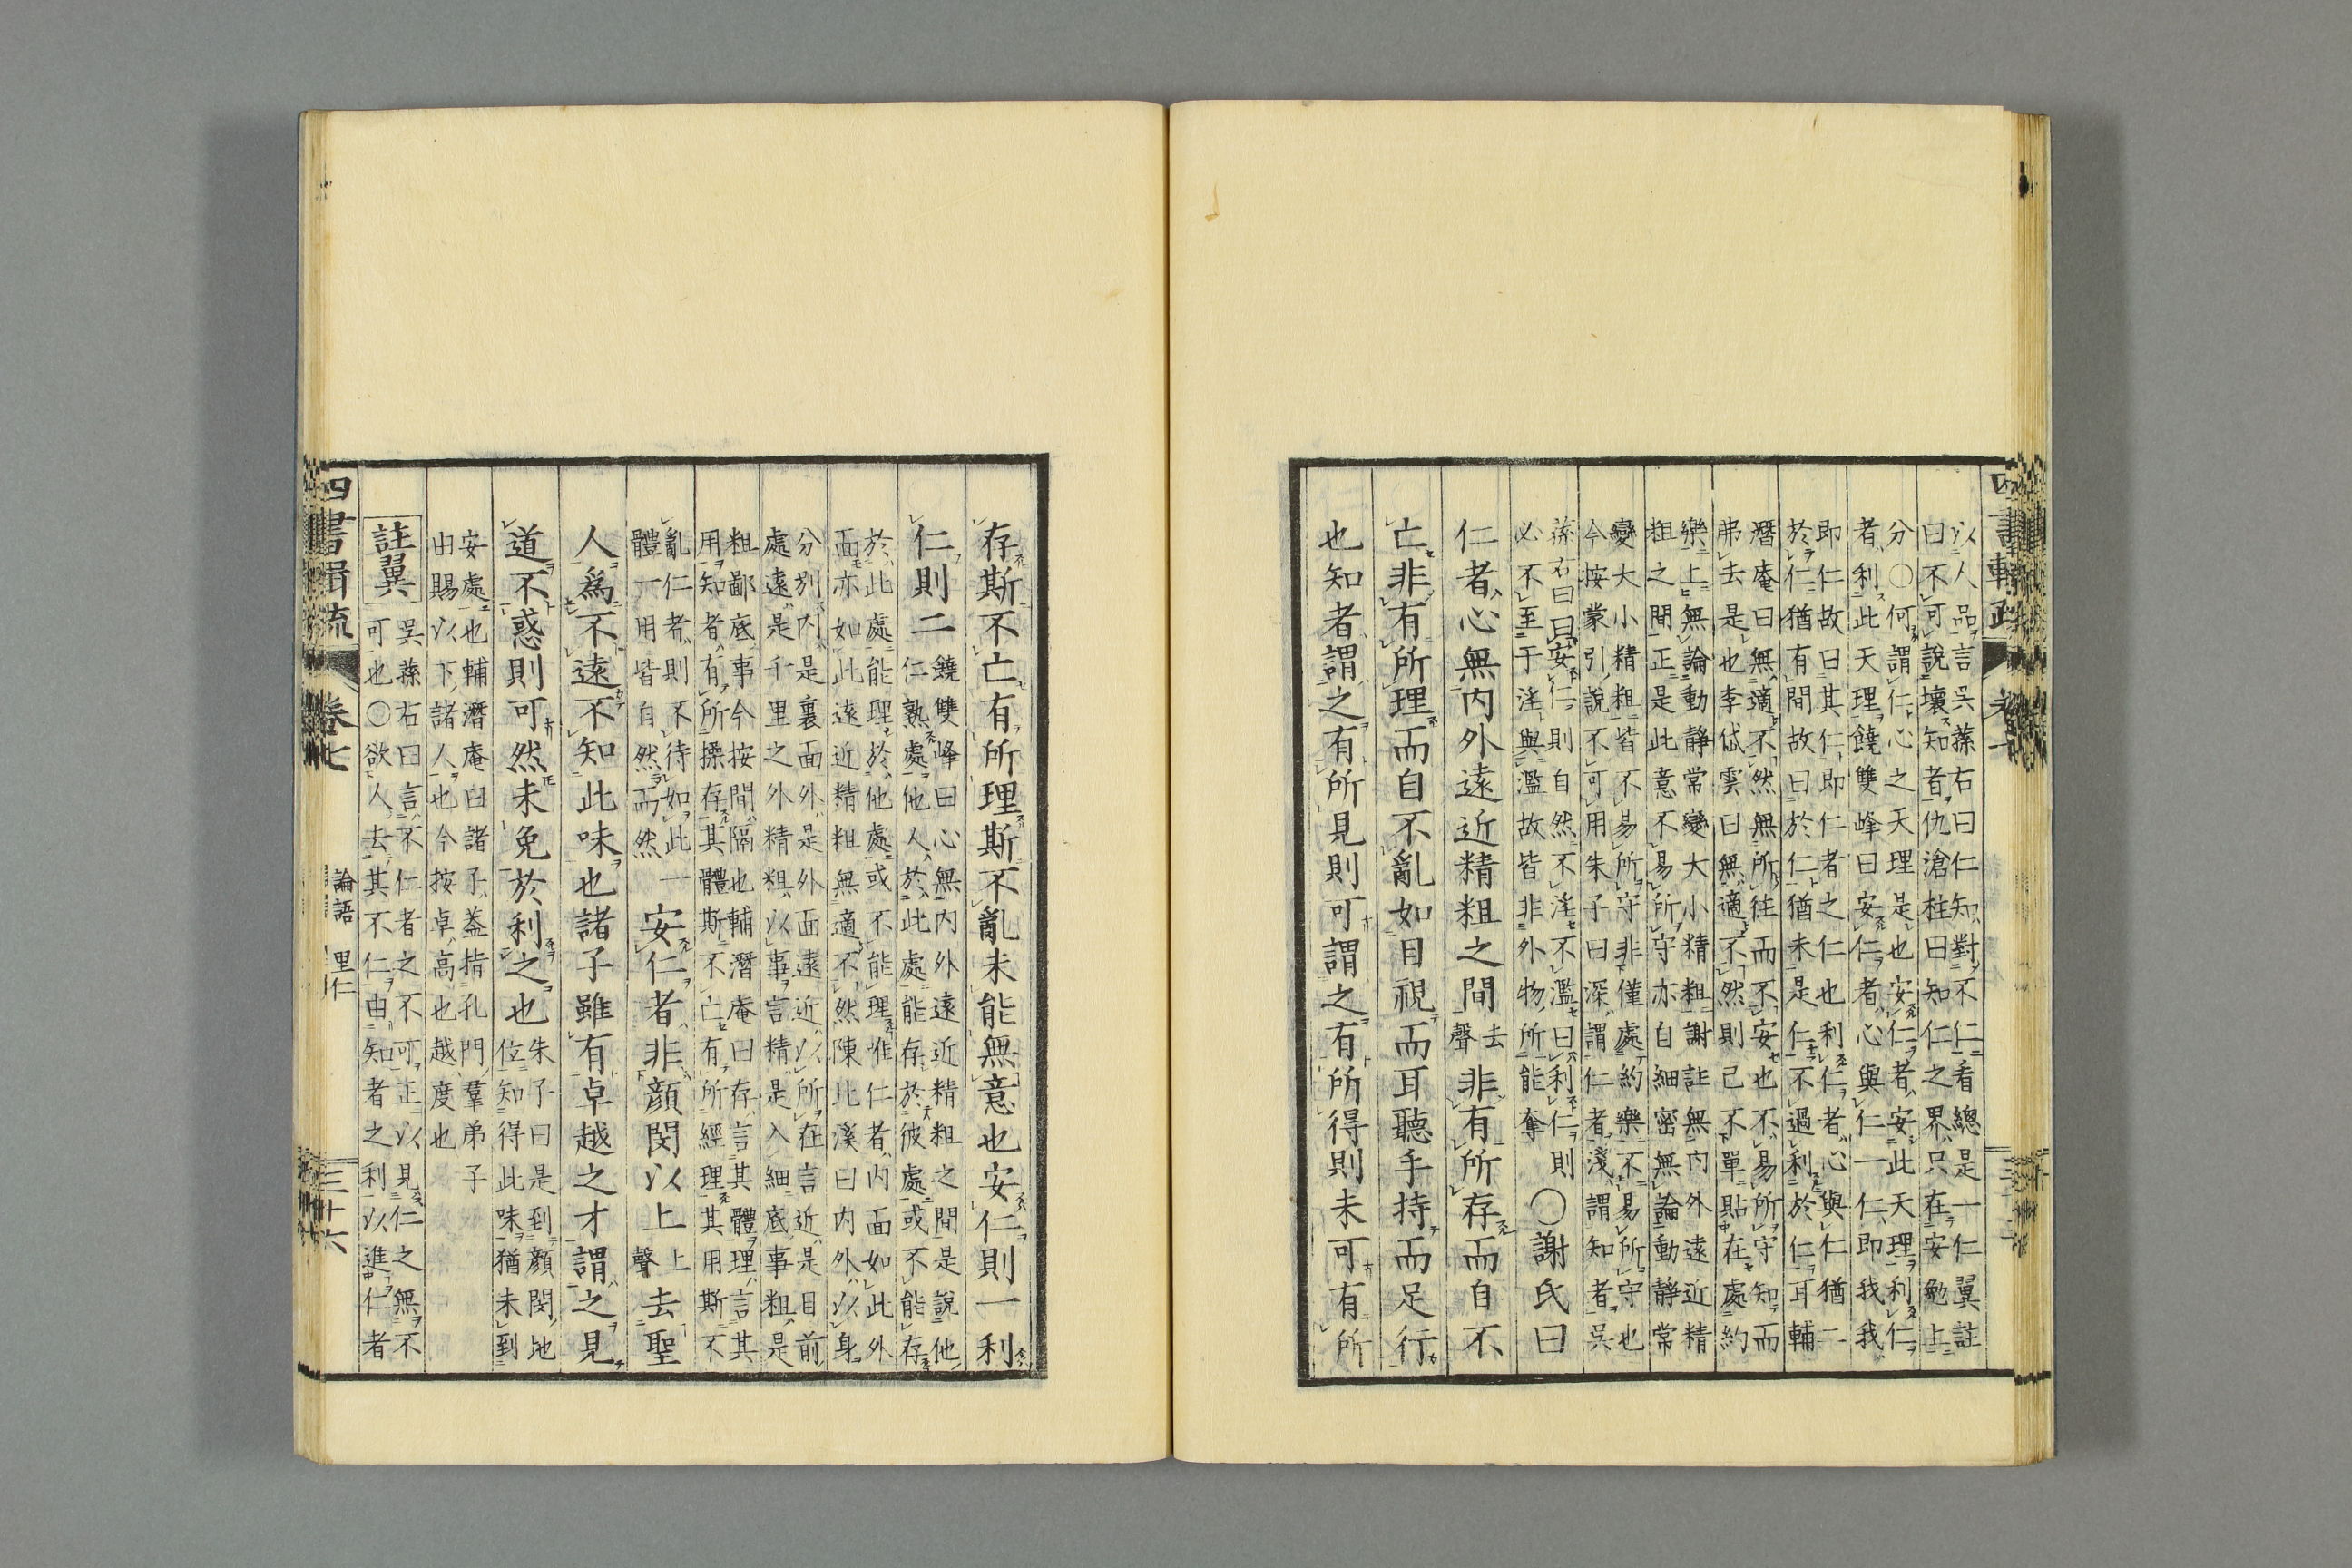 以人品言吳蓀右曰仁知對不仁看總是一仁翼註
曰不可說壞知者仇滄柱曰知仁之界只在安勉上
分〇何謂仁心之天理是也安仁者安此天理利仁
者利此天理饒雙峰曰安仁者心與仁一仁即我我
即仁故曰其仁即仁者之仁也利仁者心與仁猶二
於仁猶有間故曰於仁猶未是仁不過利於仁耳輔
潛庵曰無適不然無所往而不安也不易所守知而
弗去是也李岱雲曰無適不然則已不單貼在處約
樂上無論動靜常變大小精粗謝註無內外遠近精
粗之間正是此意不易所守亦自細密無論動靜常
變大小精粗皆不易所守非僅處約樂不易所守也
今按蒙引說不可用朱子曰深謂仁者淺謂知者吳
蓀右曰曰安仁則自然不淫不濫曰利仁則
必不至于淫與濫故皆非外物所能奪
〇謝氏曰
仁者心無內外遠近精粗之間
去聲
非有所存而自不
亡非有所理而自不亂如目視而耳聽手持而足行
也知者謂之有所見則可謂之有所得則未可有所
存斯不亡有所理斯不亂未能無意也安仁則一利
仁則二
饒雙峰曰心無內外遠近精粗之間是說他
仁熟處他人於此處能存於彼處或不能存
於此處能理於他處或不能理惟仁者內面如此外
面亦如此遠近精粗無適不然陳北溪曰內外以身
分別內是裏面外是外面遠近以所在言近是目前
處遠是千里之外精粗以事言精是入細底事粗是
粗鄙底事今按間隔也輔潛庵曰存言其體理言其
用知者有所操存其體斯不亡有所經理其用斯不
亂仁者則不待如此一
體一用皆自然而然
安仁者非顏閔以上
上聲
去聖
人為不遠不知此味也諸子雖有卓越之才謂之見
道不惑則可然未免於利之也
朱子曰是到顏閔地
位知得此味猶未到
安處也輔潛庵曰諸子蓋指孔門羣弟子
由賜以下諸人也今按卓高也越度也
註翼
吳蓀右曰言不仁者之不可正以見仁之無不
可也〇欲人去其不仁由知者之利以進仁者
四書輯疏 卷七 論語 里仁 三十六